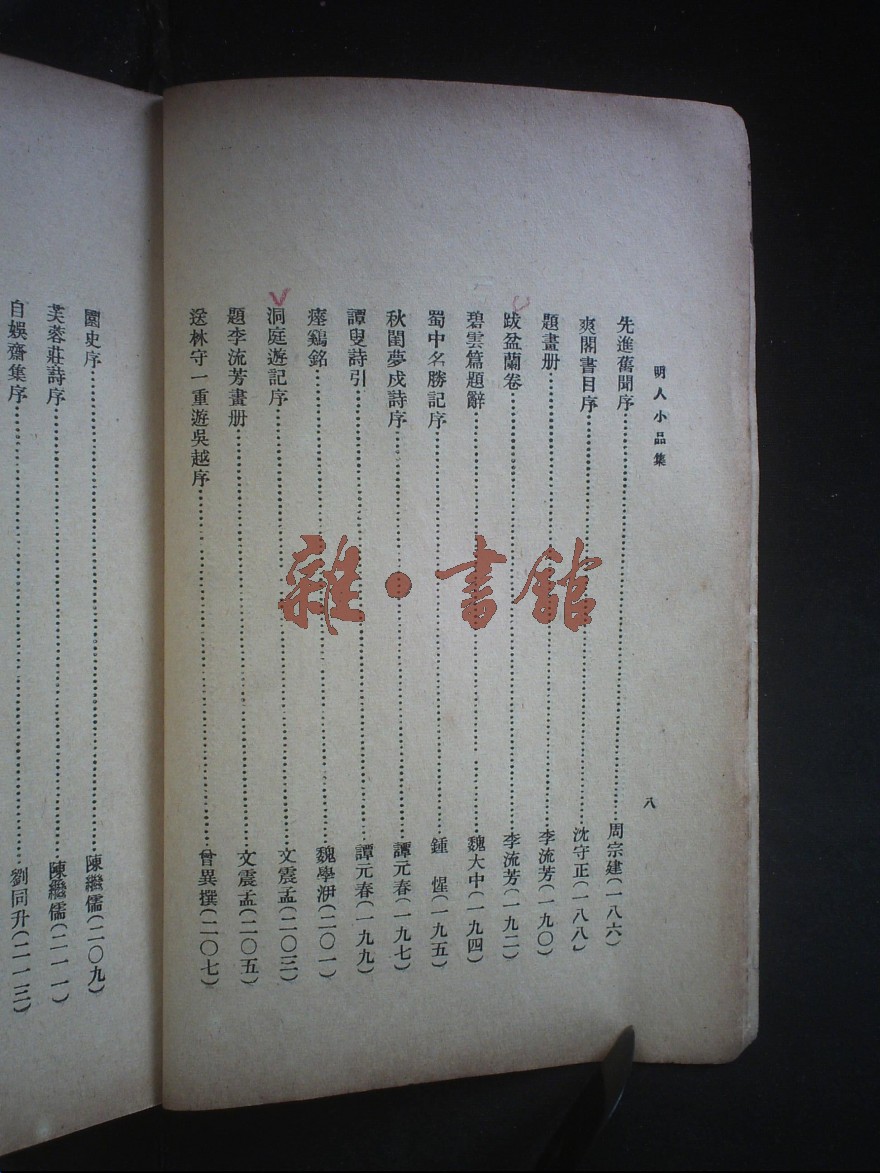 明人小品集
八
先進舊聞序……周宗建(一八六)
爽閣書目序……沈守正(一八八)
題畫册……李流芳(一九〇)
跋盆蘭卷……李流芳(一九二)
碧雲篇題辭……魏大中(一九四)
蜀中名勝記序……鍾惺(一九五)
秋閨夢戍詩序……譚元春(一九七)
譚叟詩引……譚元春(一九九)
瘞鷄銘……魏學洢(二〇一)
洞庭遊記序……文震孟(二〇三)
題李流芳畫册……文震孟(二〇五)
送林守一重遊吳越序……曾異撰(二〇七)
園史序……陳繼儒(二〇九)
芙蓉莊詩序……陳繼儒(二一一)
自娛齋集序……劉同升(二一三)
雜·書館